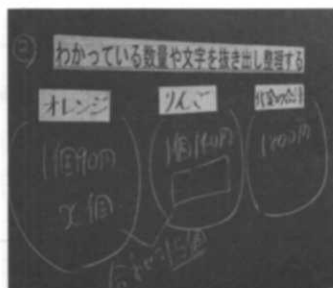 ②
わかっている数量や文字を抜き出し整理する
オレンジ
りんご
代金の合計
1個90円
x個
1個140円
1700円
合わせて15個